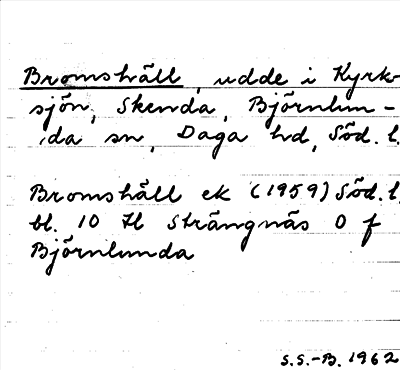 Bromshäll, udde i Kyrk-
sjön, Skenda, Björnlun-
da sn, Daga hd, Söd. l.
Bromshäll ek (1959) Söd. l.
bl. 10 Hl Strängnäs O f
Björnlunda
S.S.-B. 1962